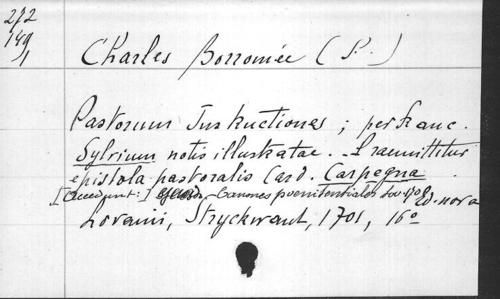 272
149
1
Charles Borromée (S.)
Pastorum Instructiones; per Franc.
Sylvium notis illustratae. Praemittitur
epistola pastoralis Card. Carpegna.
[Accedunt:] Canones poenitentiales Ed. nova
Lovanii, Stryckwant, 1701, 16°